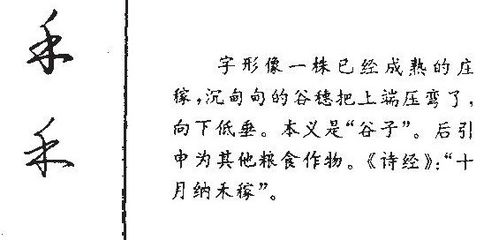 禾
禾
字形像一株已经成熟的庄
稼，沉甸甸的谷穗把上端压弯了，
向下低垂。本义是“谷子”。后引
申为其他粮食作物。《诗经》：“十
月纳禾稼”。